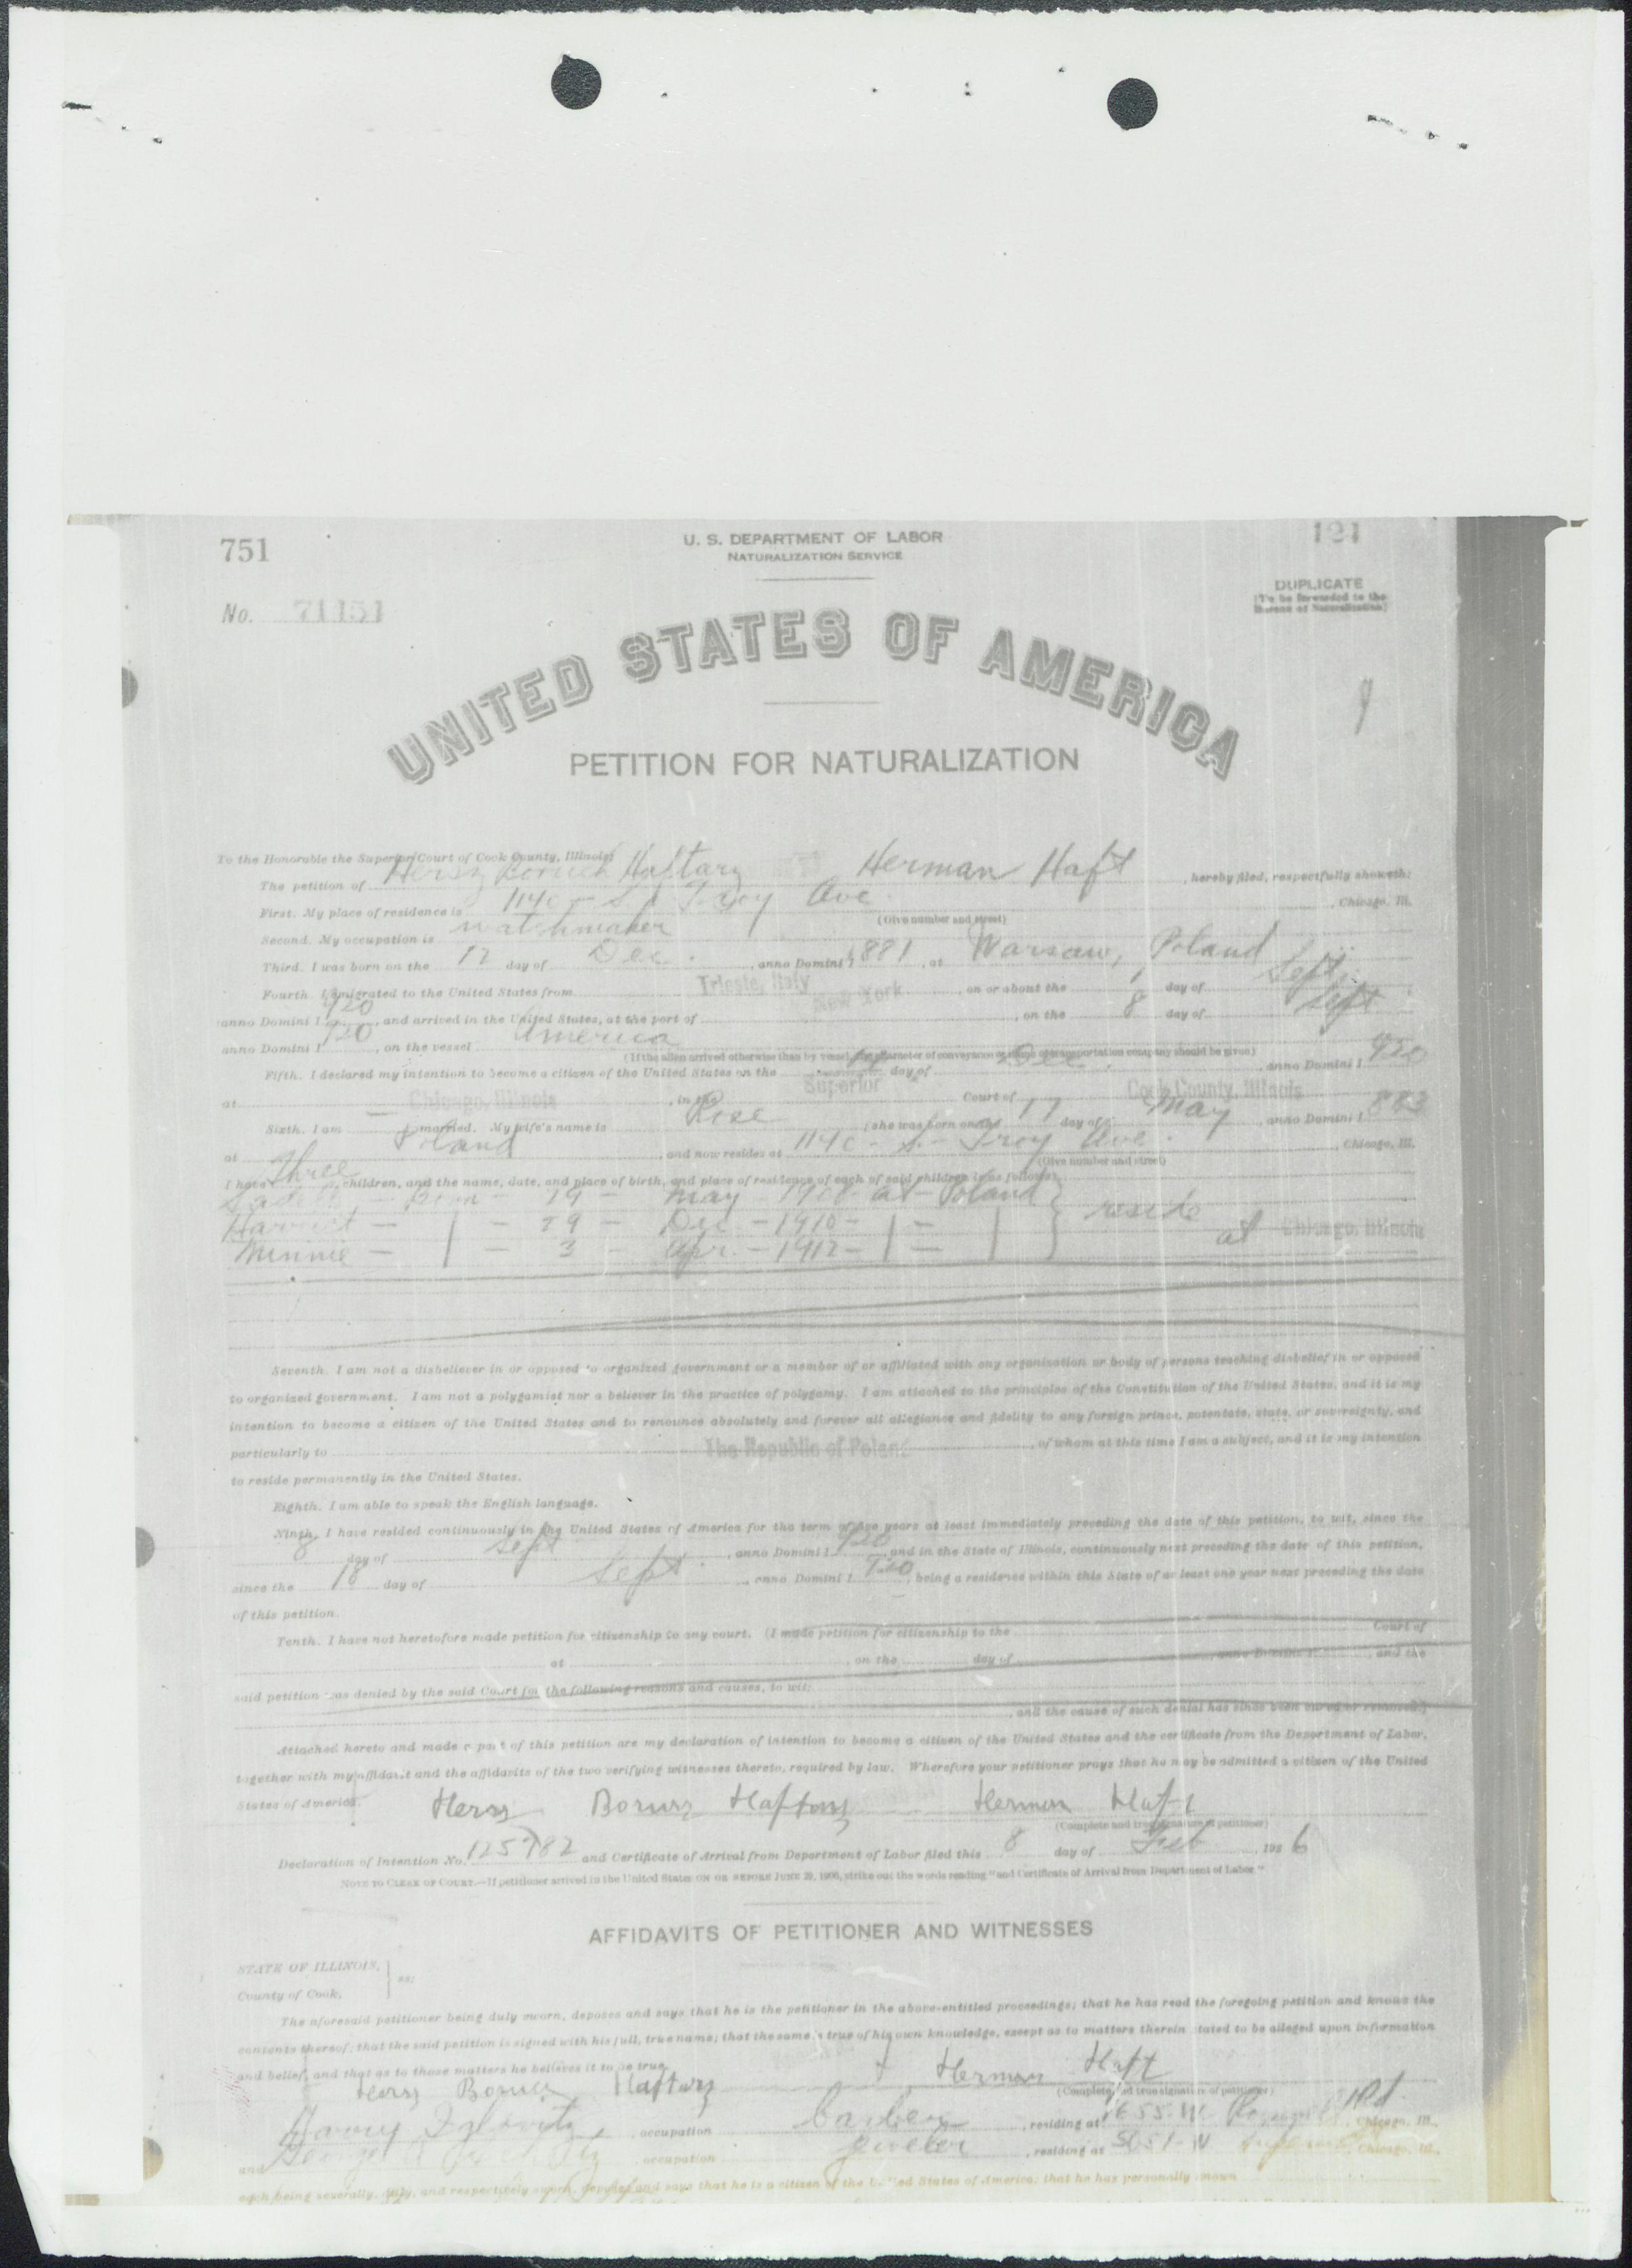 751
U. S. DEPARTMENT OF LABOR
NATURALIZATION SERVICE
121
DUPLICATE
(To be forwarded to the
Bureau of Naturalization)
No. 71151
UNITED STATES OF AMERICA
PETITION FOR NATURALIZATION
To the Honorable the Superior Court of Cook County, Illinois:
The petition of Hersz Boruch Haftarz Herman Haft, hereby filed, respectfully showeth:
First. My place of residence is 1140 - S. Troy Ave. , Chicago, Ill.
(Give number and street)
Second. My occupation is watchmaker
Third. I was born on the 17 day of Dec. , anno Domini 1881, at Warsaw, Poland
Fourth. I emigrated to the United States from Trieste, Italy , on or about the 1 day of Sept.
anno Domini 1920, and arrived in the United States, at the port of New York , on the 8 day of Sept
anno Domini 1920, on the vessel America
(If the alien arrived otherwise than by vessel, the character of conveyance or name of transportation company should be given)
Fifth. I declared my intention to become a citizen of the United States on the 14 day of Dec. , anno Domini 1920
at Chicago, Illinois , in the Superior Court of Cook County, Illinois
Sixth. I am married. My wife's name is Rose ; she was born on the 17 day of May , anno Domini 1883
at Poland , and now resides at 1140 - S. - Troy Ave. , Chicago, Ill.
(Give number and street)
I have three children, and the name, date, and place of birth, and place of residence of each of said children is as follows:
born - 19 - May - 1908 - at - Poland reside
Harriet - | - 29 - Dec. - 1910 - | - |
Minnie - | - 3 - Apr. - 1912 - | - | at Chicago, Illinois
Seventh. I am not a disbeliever in or opposed to organized government or a member of or affiliated with any organization or body of persons teaching disbelief in or opposed
to organized government. I am not a polygamist nor a believer in the practice of polygamy. I am attached to the principles of the Constitution of the United States, and it is my
intention to become a citizen of the United States and to renounce absolutely and forever all allegiance and fidelity to any foreign prince, potentate, state, or sovereignty, and
particularly to The Republic of Poland , of whom at this time I am a subject, and it is my intention
to reside permanently in the United States.
Eighth. I am able to speak the English language.
Ninth. I have resided continuously in the United States of America for the term of five years at least immediately preceding the date of this petition, to wit, since the
8 day of Sept , anno Domini 1920, and in the State of Illinois, continuously next preceding the date of this petition,
since the 18 day of Sept. , anno Domini 1920, being a residence within this State of at least one year next preceding the date
of this petition.
Tenth. I have not heretofore made petition for citizenship to any court. (I made petition for citizenship to the Court of
at , on the day of , anno Domini 1 , and the
said petition was denied by the said Court for the following reasons and causes, to wit:
, and the cause of such denial has since been cured or removed.)
Attached hereto and made a part of this petition are my declaration of intention to become a citizen of the United States and the certificate from the Department of Labor,
together with my affidavit and the affidavits of the two verifying witnesses thereto, required by law. Wherefore your petitioner prays that he may be admitted a citizen of the United
States of America. Hersz Borurz Haftarz Herman Haft
(Complete and true signature of petitioner)
Declaration of Intention No. 125782 and Certificate of Arrival from Department of Labor filed this 8 day of Feb , 1926
NOTE TO CLERK OF COURT.—If petitioner arrived in the United States ON OR BEFORE JUNE 29, 1906, strike out the words reading "and Certificate of Arrival from Department of Labor."
AFFIDAVITS OF PETITIONER AND WITNESSES
STATE OF ILLINOIS,
ss:
County of Cook,
The aforesaid petitioner being duly sworn, deposes and says that he is the petitioner in the above-entitled proceedings; that he has read the foregoing petition and knows the
contents thereof; that the said petition is signed with his full, true name; that the same is true of his own knowledge, except as to matters therein stated to be alleged upon information
and belief, and that as to those matters he believes it to be true.
Hersz Borurz Haftarz Herman Haft
(Complete and true signature of petitioner)
Harry , occupation barber , residing at Rd. , Chicago, Ill.,
and George , occupation jeweler , residing at , Chicago, Ill.,
each being severally, duly, and respectively sworn, deposes and says that he is a citizen of the United States of America; that he has personally known